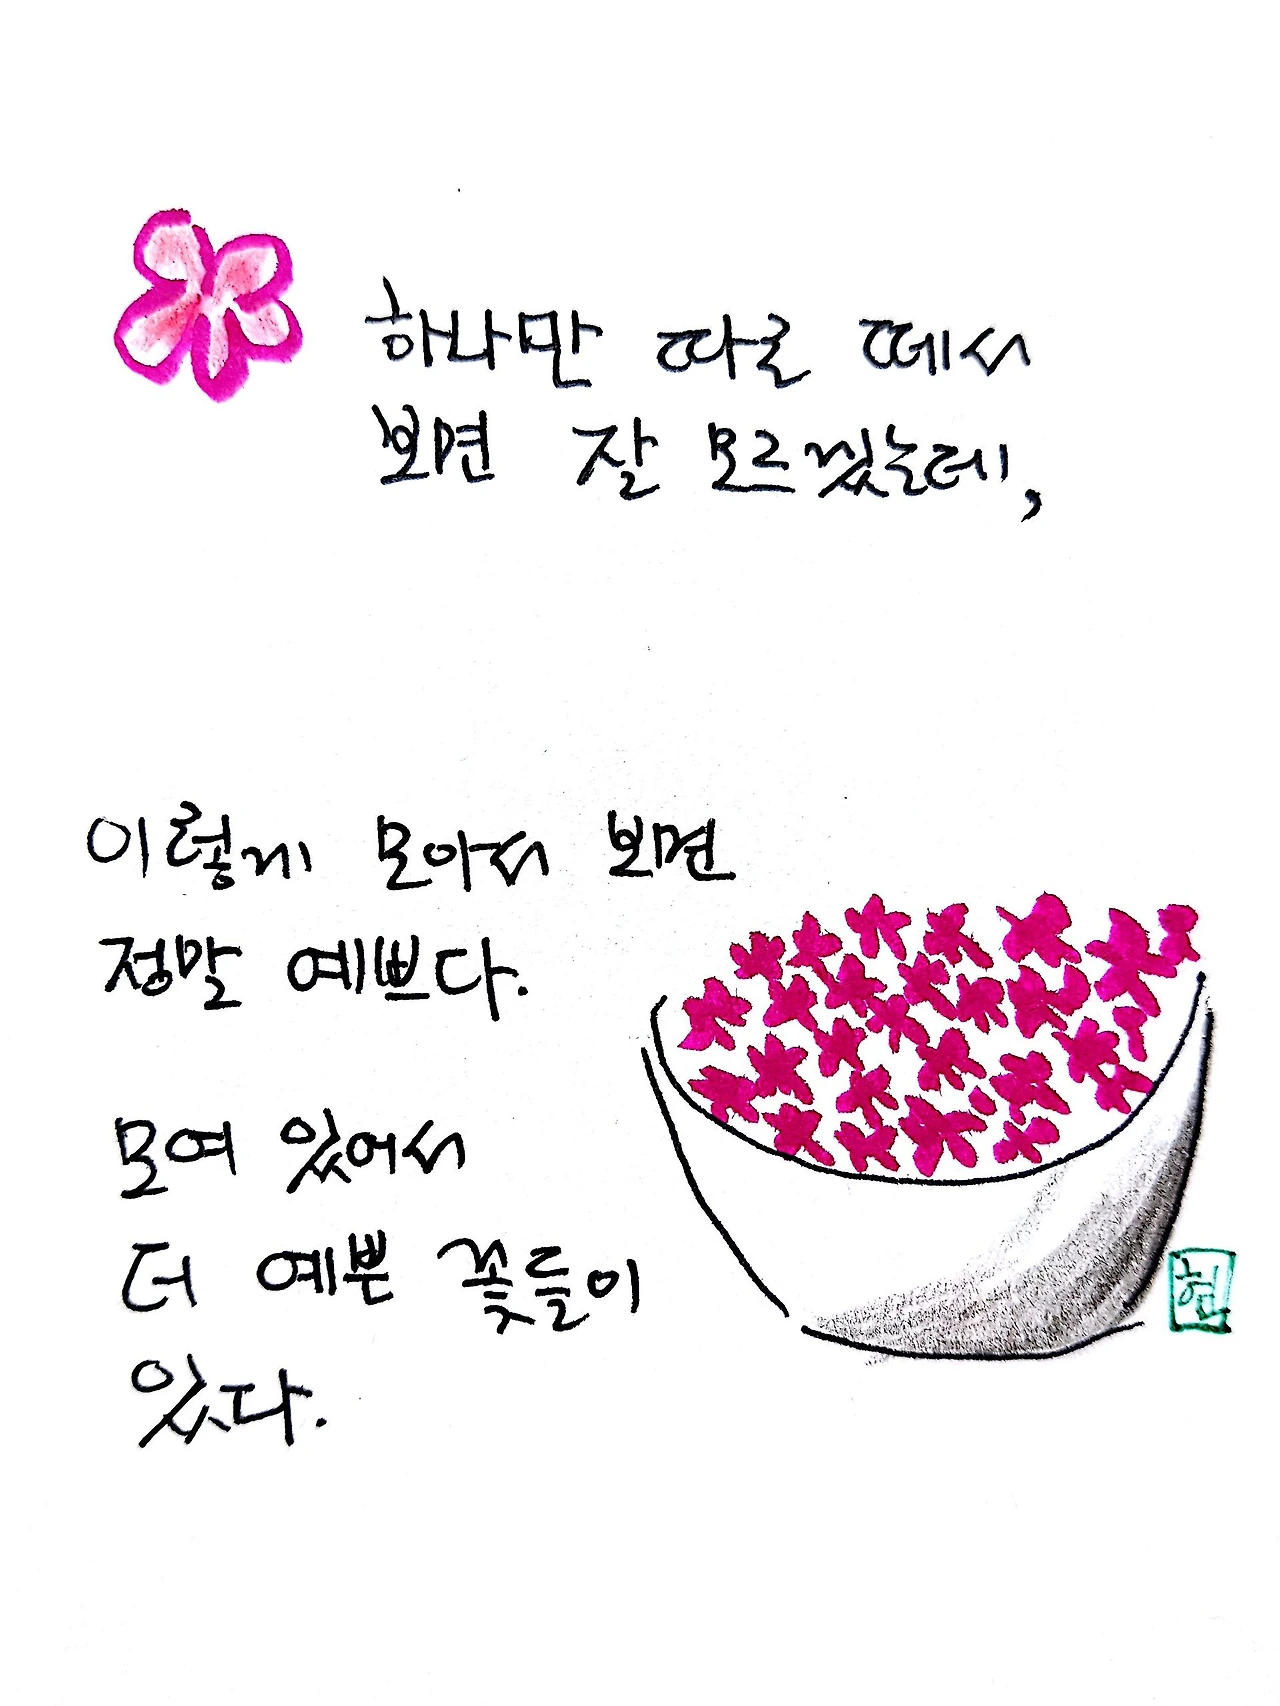 하나만 따로 떼서
보면 잘 모르겠는데,
이렇게 모아서 보면
정말 예쁘다.
모여 있어서
더 예쁜 꽃들이
있다.